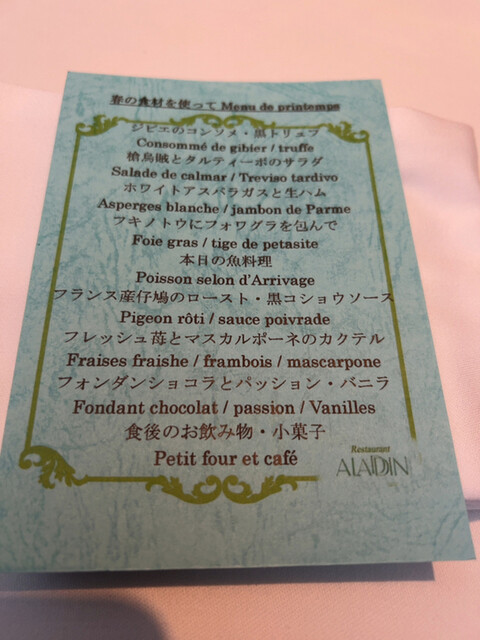 春の食材を使って Menu de printemps
ジビエのコンソメ・黒トリュフ
Consommé de gibier / truffe
槍烏賊とタルティーボのサラダ
Salade de calmar / Treviso tardivo
ホワイトアスパラガスと生ハム
Asperges blanche / jambon de Parme
フキノトウにフォワグラを包んで
Foie gras / tige de petasite
本日の魚料理
Poisson selon d'Arrivage
フランス産仔鳩のロースト・黒コショウソース
Pigeon rôti / sauce poivrade
フレッシュ苺とマスカルポーネのカクテル
Fraises fraishe / frambois / mascarpone
フォンダンショコラとパッション・バニラ
Fondant chocolat / passion / Vanilles
食後のお飲み物・小菓子
Petit four et café
Restaurant
ALADDIN